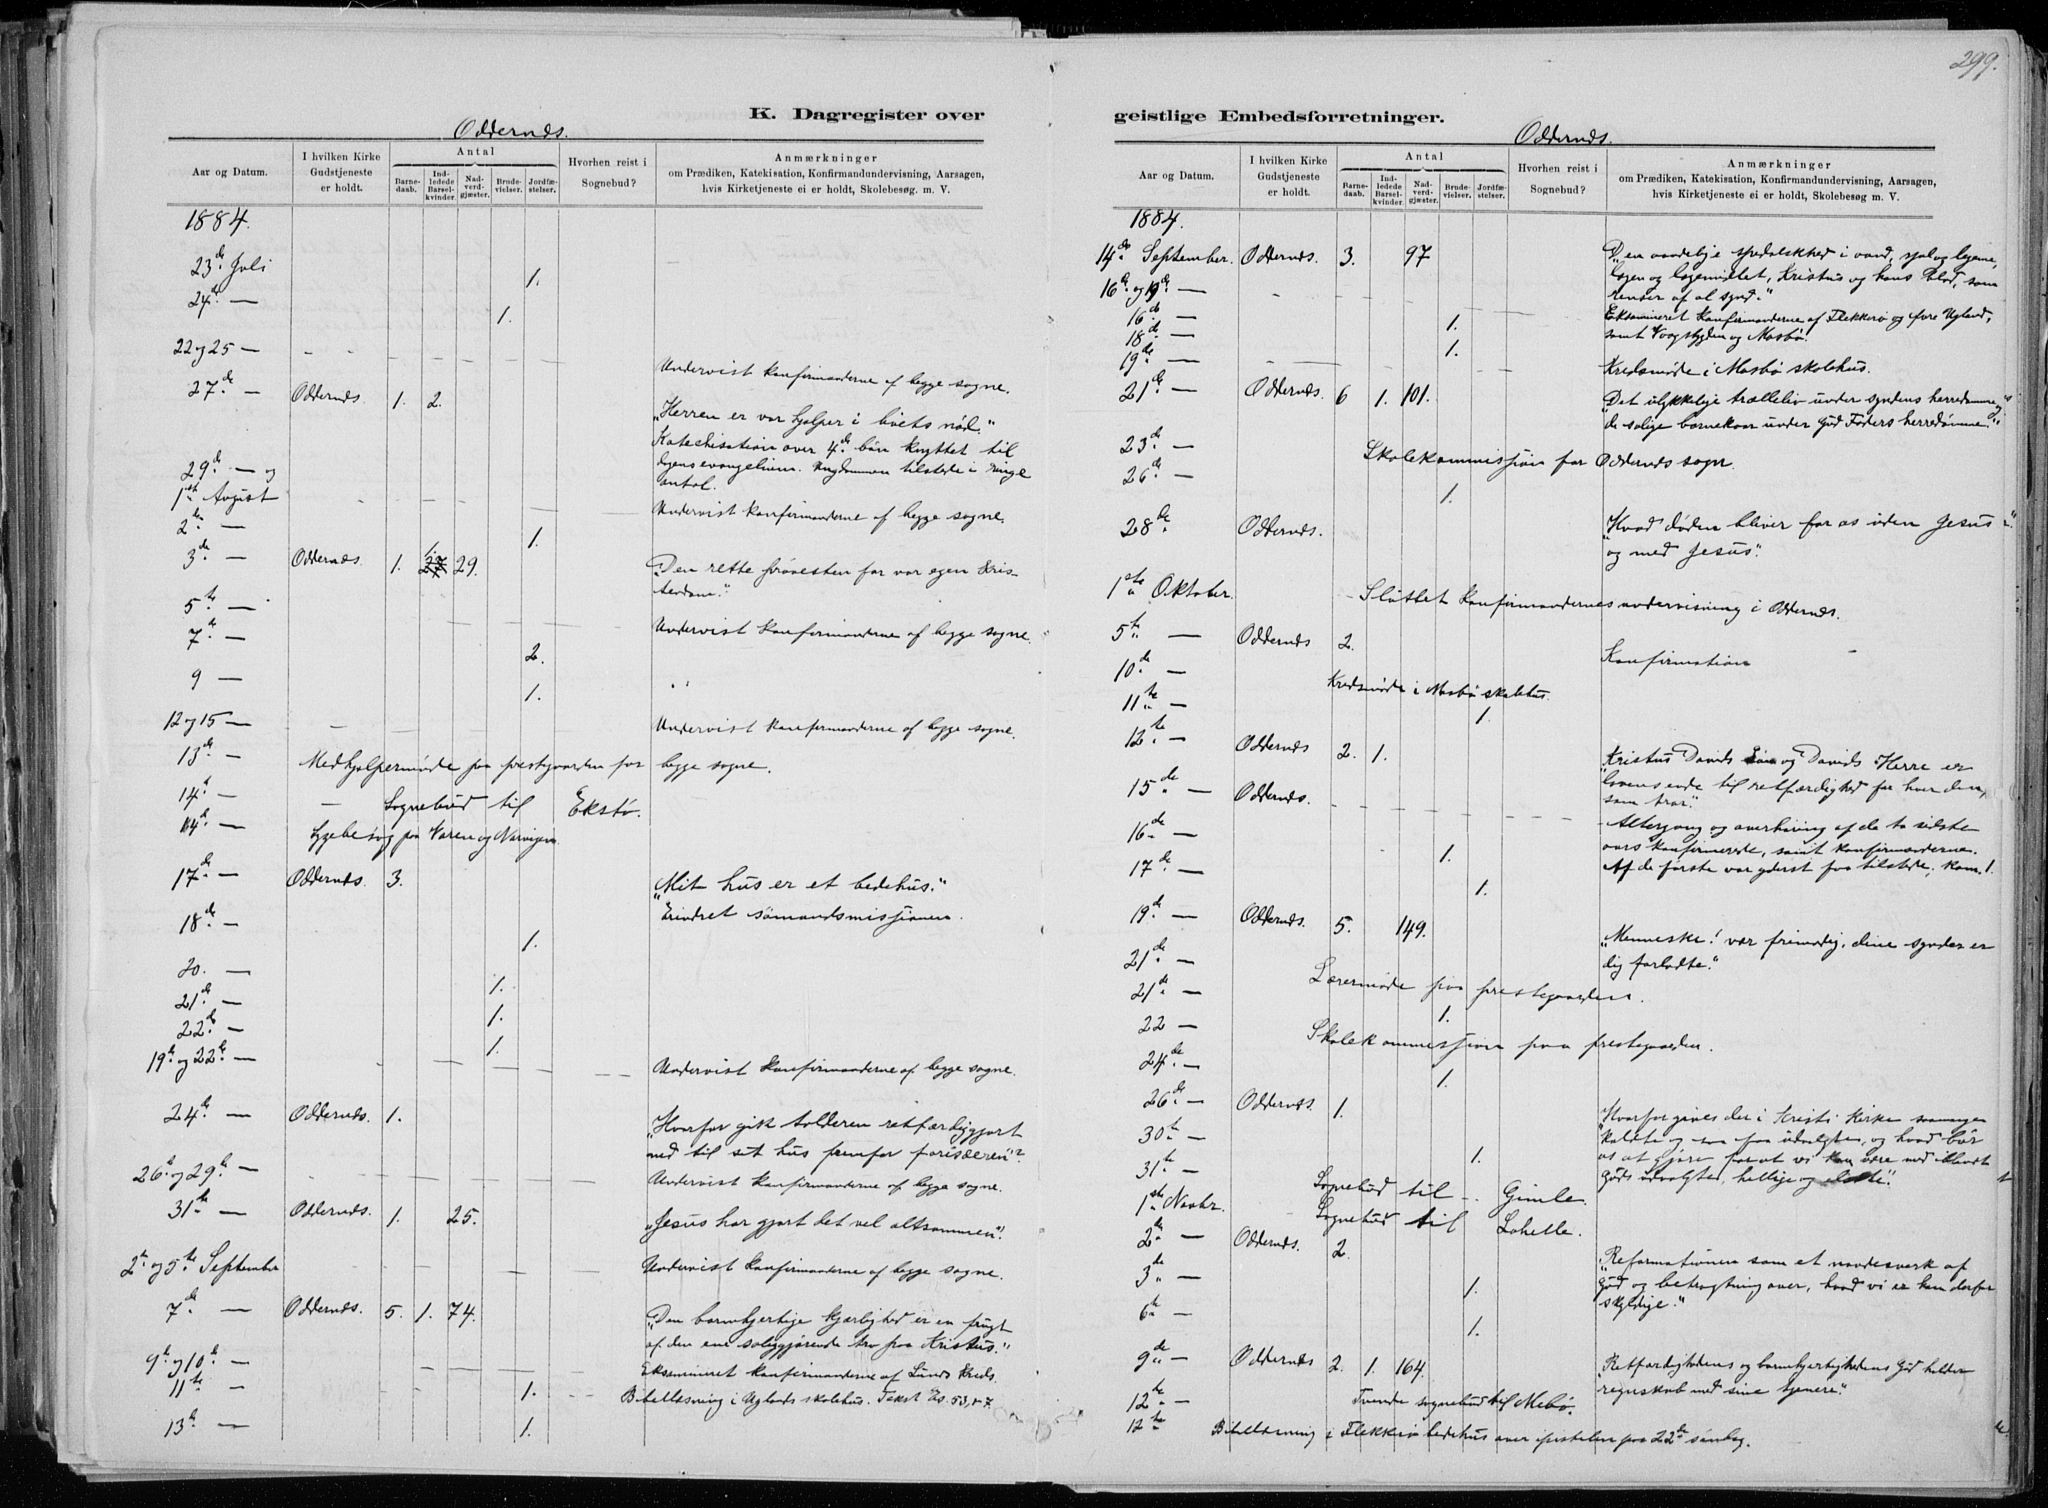 299.
K. Dagregister over
Oddernes.
Aar og Datum.
I hvilken Kirke Gudstjeneste er holdt.
Antal
Barne-daab.
Ind-ledede Barsel-kvinder.
Nad-verd-gjæster.
Brude-vielser.
Jordfæ-stelser.
Hvorhen reist i Sognebud?
Anmærkninger
om Prædiken, Katekisation, Konfirmandundervisning, Aarsagen,
hvis Kirketjeneste ei er holdt, Skolebesøg m. V.
1884.
23de Juli 1.
24de — 1.
22 og 25 — Undervist konfirmanderne af begge sogne.
27de — Oddernes 1. 2. „Herren er vor hjælper i livets nød.“
Katechisation over 4de bøn knyttet til
dagens evangelium. Ungdommen tilstede i ringe
antal.
29de — og
1ste August Undervist konfirmanderne af begge sogne.
2den — 1.
3de — Oddernes 1. 1. 29. „Den rette prøvesten for vor egen Kris-
tendom.“
5te — Undervist konfirmanderne af begge sogne.
7de — 2.
9 — 1.
12 og 15 — Undervist konfirmanderne af begge sogne.
13de — Medhjælpermøde paa prestegaarden for begge sogne.
14de — Sognebud til Ekstø.
14de — Sygebesøg paa Varen og Narvigen
17de — Oddernes 3. „Mit hus er et bedehus.“
Erindret sømandsmissionen.
18de — 1.
20. — 1.
21de — 1.
22de — 1.
19de og 22de — Undervist konfirmanderne af begge sogne.
24de — Oddernes 1. „Hvorfor gik tolderen retfærdiggjort
ned til sit hus fremfor farisæeren“?
26de og 29de — Undervist konfirmanderne af begge sogne.
31te — Oddernes. 1. 25. „Jesus har gjort det vel altsammen“.
2den og 5te September Undervist konfirmanderne af begge sogne.
7de — Oddernes. 5. 1. 74. „Den barmhjertige kjærlighed er en frugt
af den ene saliggjørende tro paa Kristus.“
9de og 10de — Eksamineret konfirmanderne af Lunds Kreds.
11te — 1. Bibellæsning i Uglands skolehus. Tekst Es. 53, 4-7.
13de — 1.
geistlige Embedsforretninger.
Oddernes.
Aar og Datum.
I hvilken Kirke Gudstjeneste er holdt.
Antal
Barne-daab.
Ind-ledede Barsel-kvinder.
Nad-verd-gjæster.
Brude-vielser.
Jordfæ-stelser.
Hvorhen reist i Sognebud?
Anmærkninger
om Prædiken, Katekisation, Konfirmandundervisning, Aarsagen,
hvis Kirketjeneste ei er holdt, Skolebesøg m. V.
1884.
14de September. Oddernes. 3. 97 „Den aandelige spedalskhed i aand, sjæl og legeme,
lægen og lægemidlet, Kristus og hans blod, som
renser af al synd.“
16de og 19de — Eksamineret Konfirmanderne af Flekkerø og øvre Ugland,
samt Vaagsbygden og Mosbø.
16de — 1.
18de — 1.
19de — Kredsmøde i Mosbø skolehus.
21de — Oddernes. 6 1. 101. „Det ulykkelige trælleliv under syndens herredømme og
de salige børnekaar under Gud Faders herredømme.“
23de — Skolekommission for Oddernes sogn.
26de — 1.
28de Oddernes. „Hvad døden bliver for os uden Jesus
og med Jesus“.
1ste Oktober. Sluttet konfirmandernes undervisning i Oddernes.
5te — Oddernes 2. Konfirmation
10de — Kredsmøde i Mosbø skolehus.
11te — 1.
12te — Oddernes 2. 1. „Kristus Davids Søn og Davids Herre er
lovens ende til retfærdighed for hver den,
som tror“.
15de — Oddernes. Altergang og overhøring af de to sidste
aars konfirmerede, samt konfirmanderne.
Af de første var yderst faa tilstede, kom. 1.
16de — 1.
17de — 1.
19de — Oddernes. 5. 149. „Menneske! vær frimodig, dine synder er
dig forladte.“
21de — Lærermøde paa prestegaarden.
21de — 1.
22 — Skolekommission paa prestegaarden.
24de — 1.
26de — Oddernes. 1. „Hvorfor gives der i Kristi Kirke saa mange
kaldte og saa faa udvalgte, og hvad bør
os at gjøre forat vi kan være med iblandt
Guds udvalgte, hellige og elskte“.
30te — 1.
31te — Sognebud til Gimle.
1ste Novbr. Sognebud til Lahelle.
2den — Oddernes. 2. „Reformationen som et naadesverk af
Gud og betragtning over, hvad vi er ham derfor
skyldige.“
3de — 1.
6te — 1.
9de — Oddernes 2. 1. 164. „Retfærdighedens og barmhjertighedens Gud holder
regnskab med sine tjenere“.
12te — Tvende sognebud til Mebø.
12te Bibellæsning i Flekkerø bedehus over epistelen paa 22de søndag.